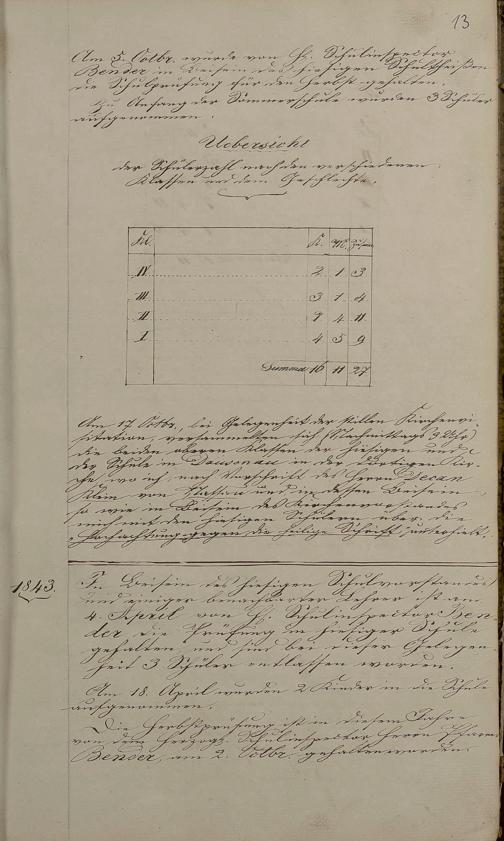 13
Am 5. Octbr. wurde von H. Schulinspector
Bender im Beisein des hiesigen Schultheißen
die Schulprüfung für den Herbst gehalten.
Zu Anfang der Sommerschule wurden 3 Schüler
aufgenommen.
Uebersicht
der Schülerzahl nach den verschiedenen
Klassen und dem Geschlechte.
Kl. K. M. Zusam
IV 2 1 3
III 3 1 4
II 7 4 11
I 4 5 9
Summa 16 11 27
Am 17. Octbr., bei Gelegenheit der stillen Kirchenvi-
sitation, versammelten sich (Nachmittags 3 Uhr)
die beiden oberen Klassen der hiesigen und
der Schule in in der dortigen Kir-
che, wo ich, nach Vorschrift des Herrn Decan
Klein von und in dessen Beisein
so wie im Beisein des Kirchenvorstandes
mich mit den hiesigen Schülern über die
Hochachtung gegen die heilige Schrift unterhielt.
1843.
Im Beisein des hiesigen Schulvorstandes
und einiger benachbarter Lehrer ist am
4. April von H. Schulinspector Ben-
der, die Prüfung in hiesiger Schule
gehalten und sind bei dieser Gelegen-
heit 3 Schüler entlassen worden.
Am 18. April wurden 2 Kinder in die Schule
aufgenommen.
Die Herbstprüfung ist in diesem Jahre
von dem Herzogl. Schulinspector, Herrn Pfarrer
Bender, am 2. Octbr. gehalten worden.